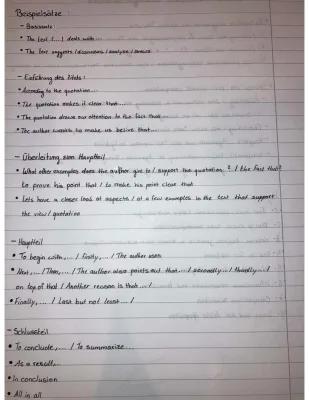 Beispielsätze:
- Basissatz:
• The text (...) deals with...
• The text suggests / discusses / analyse / shows
- Einführung des Zitats:
• According to the quotation...
• The quotation makes it clear that...
• The quotation draws our attention to the fact that...
• The author wants to make us belive that...
- Überleitung zum Hauptteil
• What other examples does the author give to / support the quotation ? / the fact that?
to prove his point that / to make his point clear that
• Lets have a closer look at aspects / at a few examples in the text that support
the view / quotation
- Hauptteil
• To begin with,... / Firstly,... / The author uses
• Next,... / Then,... / The author also points out that... / secondly... / thirdly... /
on top of that / Another reason is that... /
• Finally,... / Last but not least... /
- Schlussteil
• To conclude,... / To summarize...
• As a result...
• In conclusion
• All in all